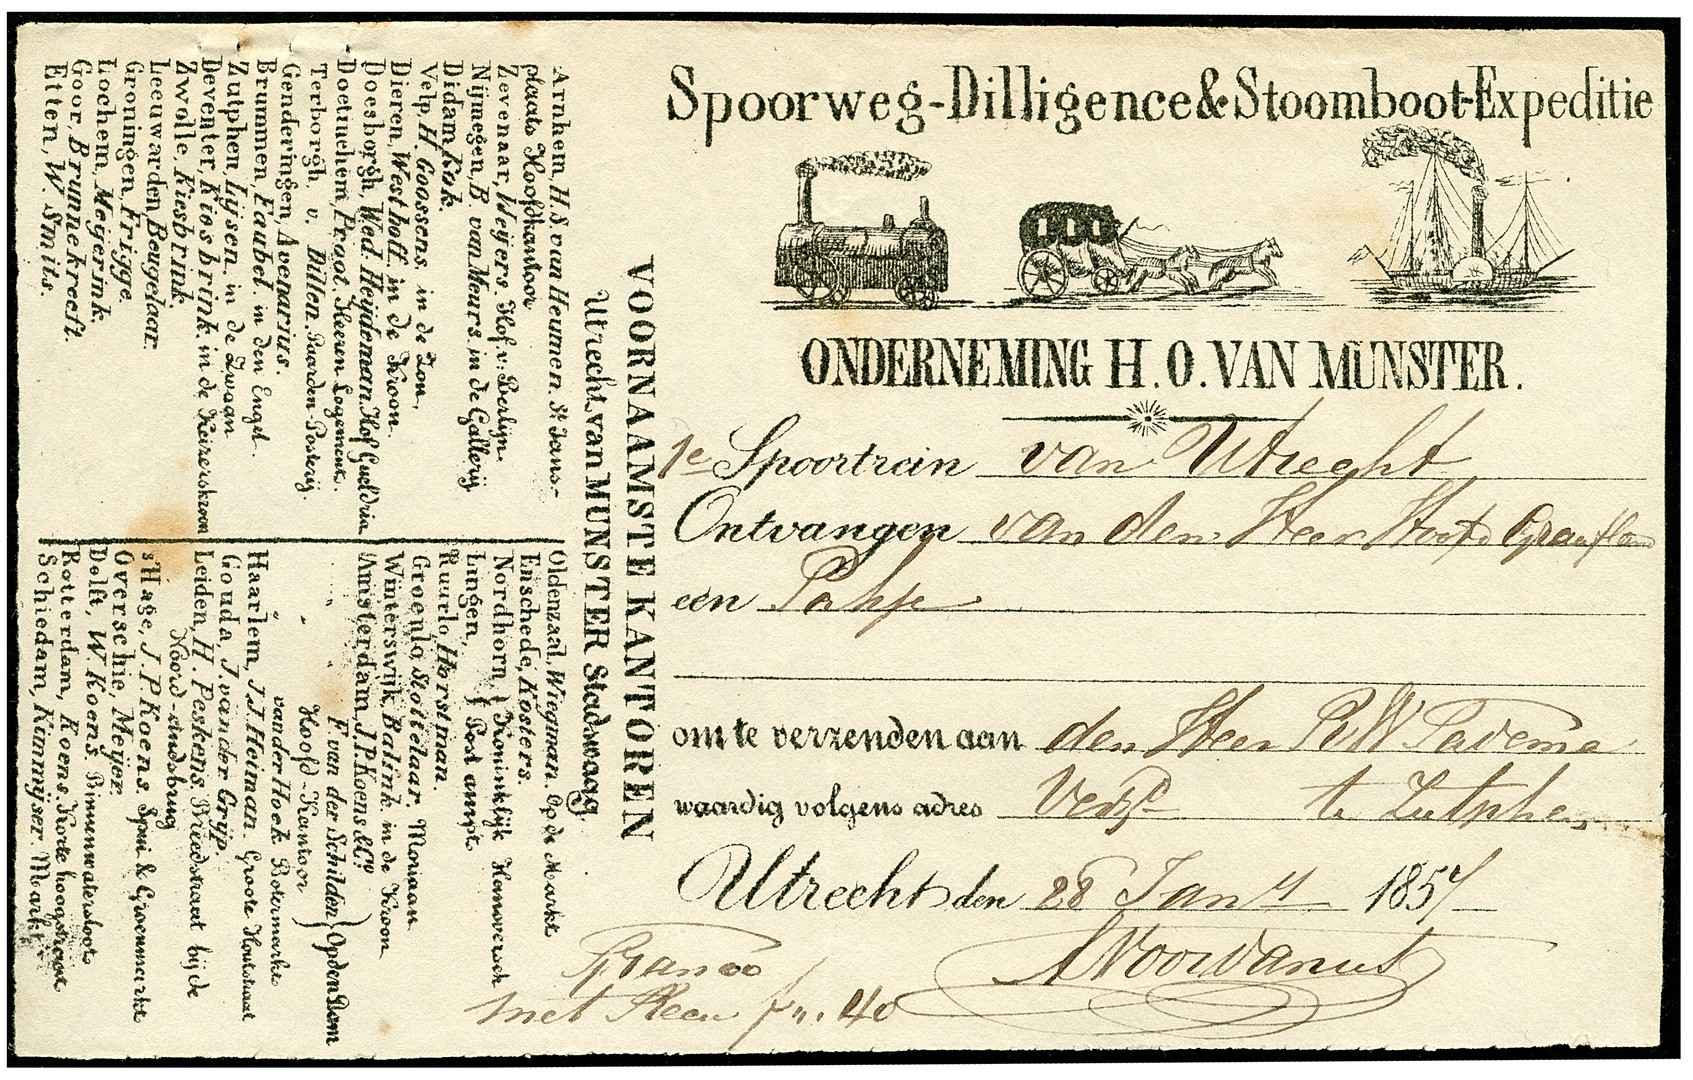 Spoorweg-Dilligence & Stoomboot-Expeditie
ONDERNEMING H. O. VAN MUNSTER.
1e Spoortrein van Utrecht
Ontvangen van den Heer
een Pakje
om te verzenden aan den Heer R W Tadema
waardig volgens adres te Zutphen
Utrecht den 28 Jany 1857
Franco
met f „. 40
VOORNAAMSTE KANTOREN
Utrecht, van MUNSTER Stadswaag.
Arnhem, H. S. van Heumen. St. Jans-
plaats Hoofdkantoor
Zevenaar, Weijers. Hof v: Berlijn.
Nijmegen, B. van Meurs. in de Gallerij.
Didam Kok.
Velp, H. Goossens. in de Zon,
Dieren, Westhoff. in de Kroon.
Doesborgh, Wed. Heijdeman Hof Gueldria
Doetinchem, Pegot. Heeren Logement.
Terborgh, v. Dillen. Paarden-Posterij.
Genderingen, Avenarius.
Brummen, Faubel. in den Engel.
Zutphen, Lijsen. in de Zwaan
Deventer, Kiesbrink, in de Keizerskroon
Zwolle, Kiesbrink.
Leeuwarden, Beugelaar.
Groningen, Frigge.
Lochem, Meijerink.
Goor, Brunnekreeft.
Etten, W. Smits.
Oldenzaal, Wiegman. Op de Markt
Enschede, Kosters.
Nordhorn, } Koninklijk Hanoversch
Lingen, } Post ampt.
Ruurlo, Horstman.
Groenlo, Stottelaar. Moriaan
Winterswijk, Balink. in de Kroon
Amsterdam, J. P. Koens & Co.
„ F. van der Schilden } Op den Dam
„ Hoofd-Kantoor
„ van der Hoek Botermarkt
Haarlem, J. J. Heiman. Groote Houtstraat
Gouda, J. van der Grijp.
Leiden, H. Peskens. Breedstraat bij de
Noord-eindsbrug
s'Hage, J. P. Koens. Spui & Groenmarkt
Overschie, Meijer.
Delft, W. Koens. Binnenwatersloot
Rotterdam, Koens, Korte hoogstraat
Schiedam, Kimmijser. Markt